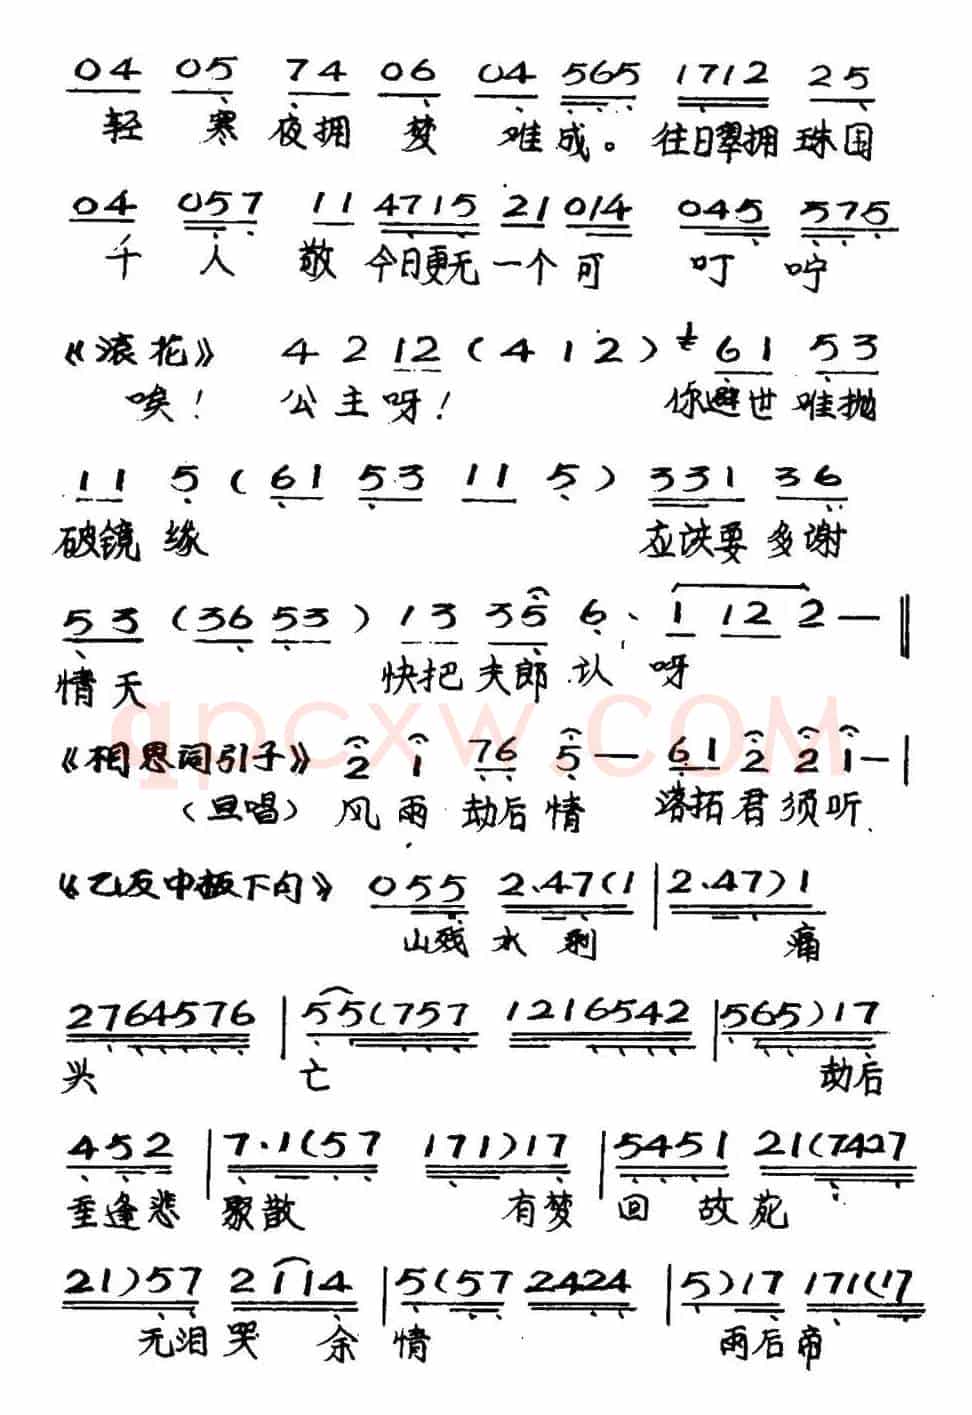 04 05 74 06 04 565 1712 25
轻 寒 夜拥 梦 难成。往日翠拥珠围
04 057 11 4715 21 014 045 575
千 人 敬 今日更无一个可 叮 咛
《滚花》 4 2 12 (4 1 2) 61 53
唉! 公主呀! 你避世难抛
11 5 (61 53 11 5) 331 36
破镜 缘 应该要 多谢
53 (36 53) 13 35 6. 1 12 2 —
情天 快把夫郎 认 呀
《相思词引子》 2 1 76 5 — 61 2 2 1 —
(旦唱) 风 雨 劫后 情 落拓君须听
《乙反中板下句》 055 2.47(1 | 2.47)1
山残 水 剩 痛
2764576 | 55(757 1216542 | 565)17
兴 亡 劫后
452 | 7.1(57 171)17 | 5451 21(7427
重逢悲 聚散 有梦 回 故苑
21)57 2114 | 5(57 2424 | 5)17 171(17
无泪哭 余 情 雨后帝
qpcxw.COM